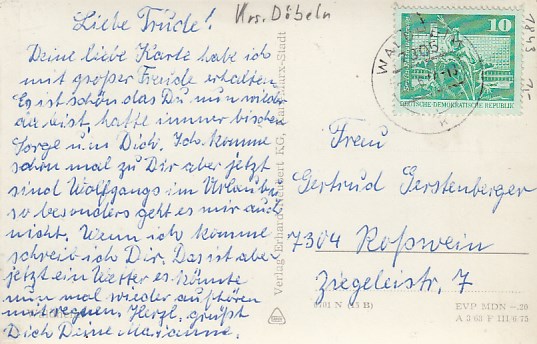 Krs. Döbeln
Liebe Trude!
Deine liebe Karte habe ich
mit großer Freude erhalten.
Es ist schön das Du nun wieder
da bist, hatte immer bischen
Sorge um Dich. Ich komme
schon mal zu Dir aber jetzt
sind Wolfgangs im Urlaub u.
so besonders geht es mir auch
nicht. Wenn ich komme
schreib ich Dir. Das ist aber
jetzt ein Wetter es könnte
nun mal wieder aufhören
mit regnen. Herzl. grüßt
Dich Deine Marianne.
Verlag Erhard Neubert KG, Karl-Marx-Stadt
10
DEUTSCHE DEMOKRATISCHE REPUBLIK
1843
1,-
Frau
Gertrud Gerstenberger
7304 Roßwein
Ziegeleistr. 7
EVP MDN -.20
A 3 68 F III 6 75